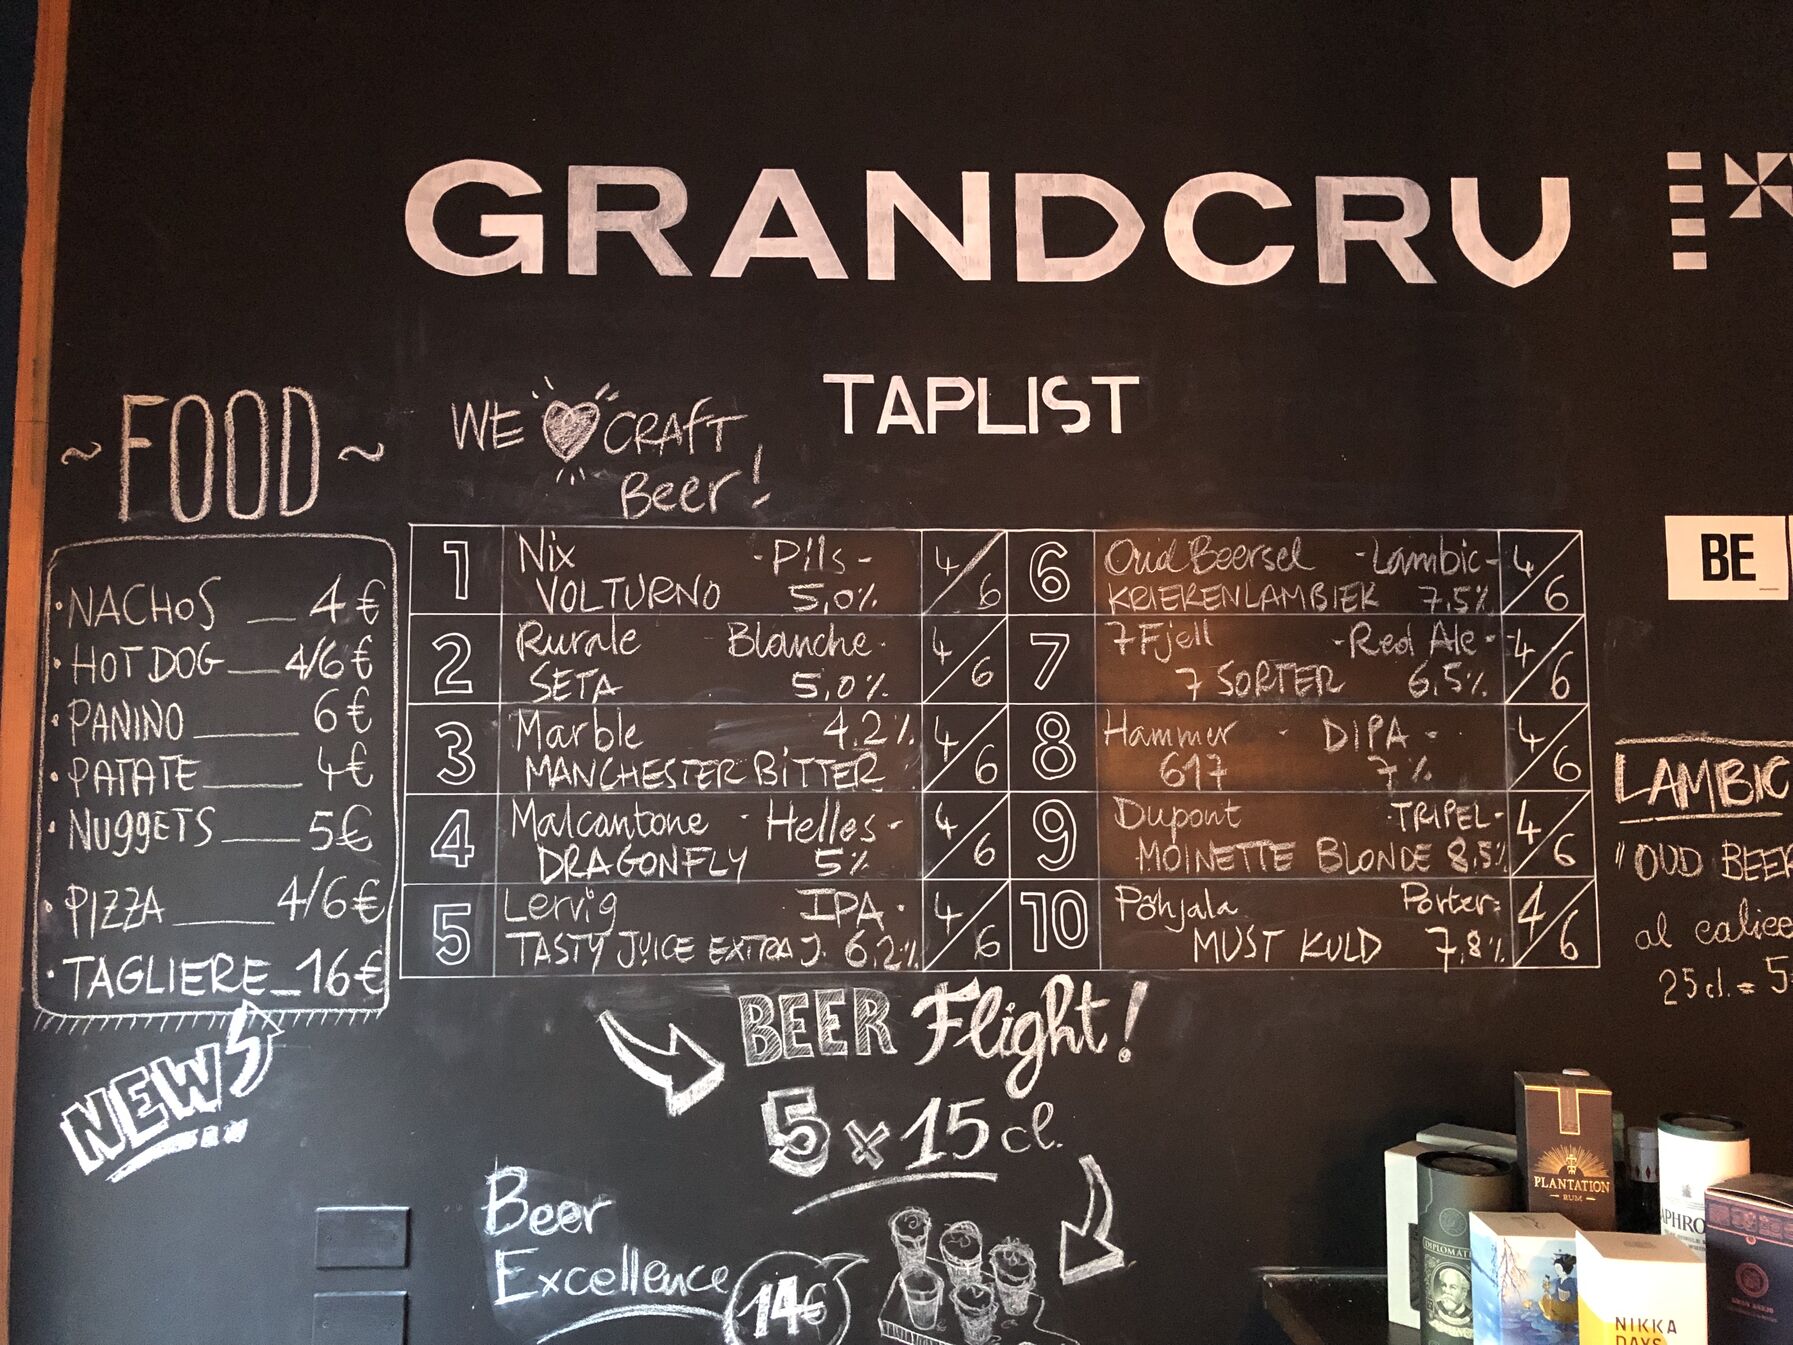 GRANDCRU
TAPLIST
~ FOOD ~
WE CRAFT
Beer!
· NACHOS __ 4€
· HOT DOG __ 4/6€
· PANINO ____ 6€
· PATATE ____ 4€
· NUGGETS ___ 5€
· PIZZA ____ 4/6€
· TAGLIERE _ 16€
NEW
1 Nix - Pils - 4/6
VOLTURNO 5,0%
2 Rurale Blanche · 4/6
SETA 5,0%
3 Marble 4.2% 4/6
MANCHESTER BITTER
4 Malcantone · Helles - 4/6
DRAGONFLY 5%
5 Lervig IPA · 4/6
TASTY JUICE EXTRA J. 6,2%
6 Oud Beersel - Lambic - 4/6
KRIEKENLAMBIEK 7,5%
7 7 Fjell - Red Ale · 4/6
7 SORTER 6,5%
8 Hammer - DIPA - 4/6
617 7%
9 Dupont TRIPEL - 4/6
MOINETTE BLONDE 8,5%
10 Põhjala Porter 4/6
MUST KULD 7,8%
BEER Flight!
5 x 15 cl.
Beer
Excellence
14€
BE
LAMBIC
"OUD BEER
al calice
25cl. = 5
PLANTATION
RUM
DIPLOMÁTI
APHRO
NIKKA
DAYS